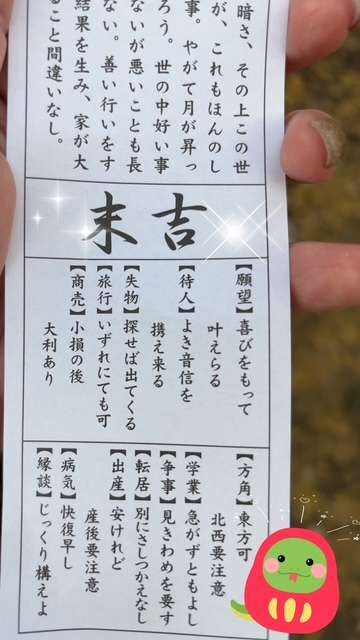 暗さ、その上この世
が、これもほんのし
事。やがて月が昇っ
ろう。世の中好い事
ないが悪いことも長
ない。善い行いをす
結果を生み、家が大
ること間違いなし。
末吉
【願望】喜びをもって
叶えらる
【待人】よき音信を
携え来る
【失物】探せば出てくる
【旅行】いずれにても可
【商売】小損の後
大利あり
【方角】東方可
北西要注意
【学業】急がずともよし
【争事】見きわめを要す
【転居】別にさしつかえなし
【出産】安けれど
産後要注意
【病気】快復早し
【縁談】じっくり構えよ